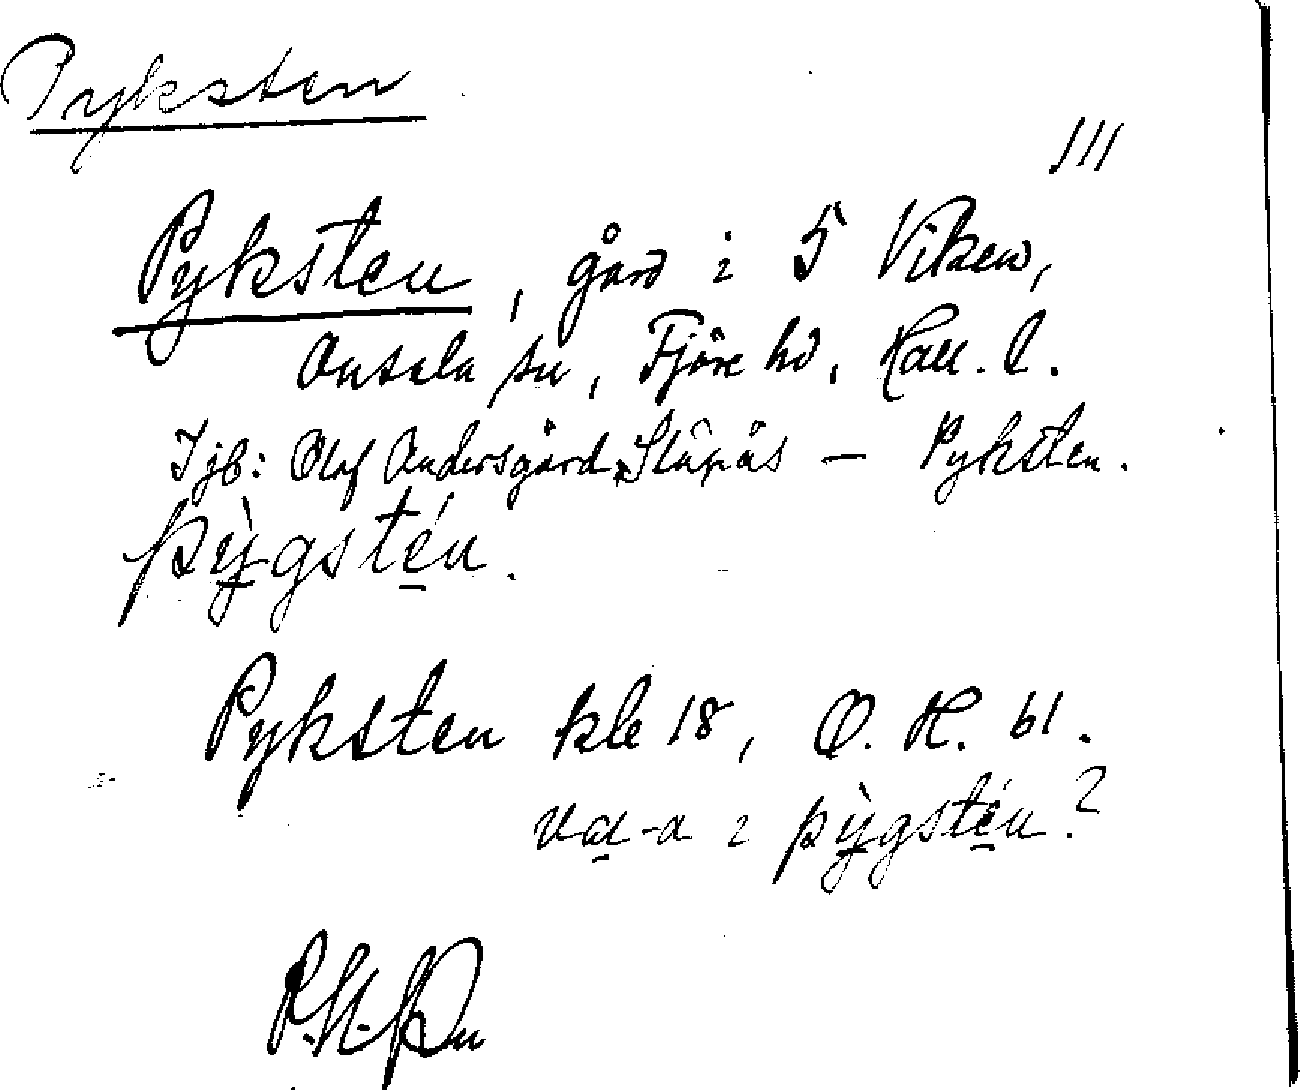 Pyksten
111
Pyksten, gård i 5 Viken,
Onsala sn, Fjäre hd, Hall. l.
I jb: Olof Andersgård, Stäpås — Pyksten.
pỳgstén.
Pyksten kle 18, O. H. 61.
va-a i pỳgstén?